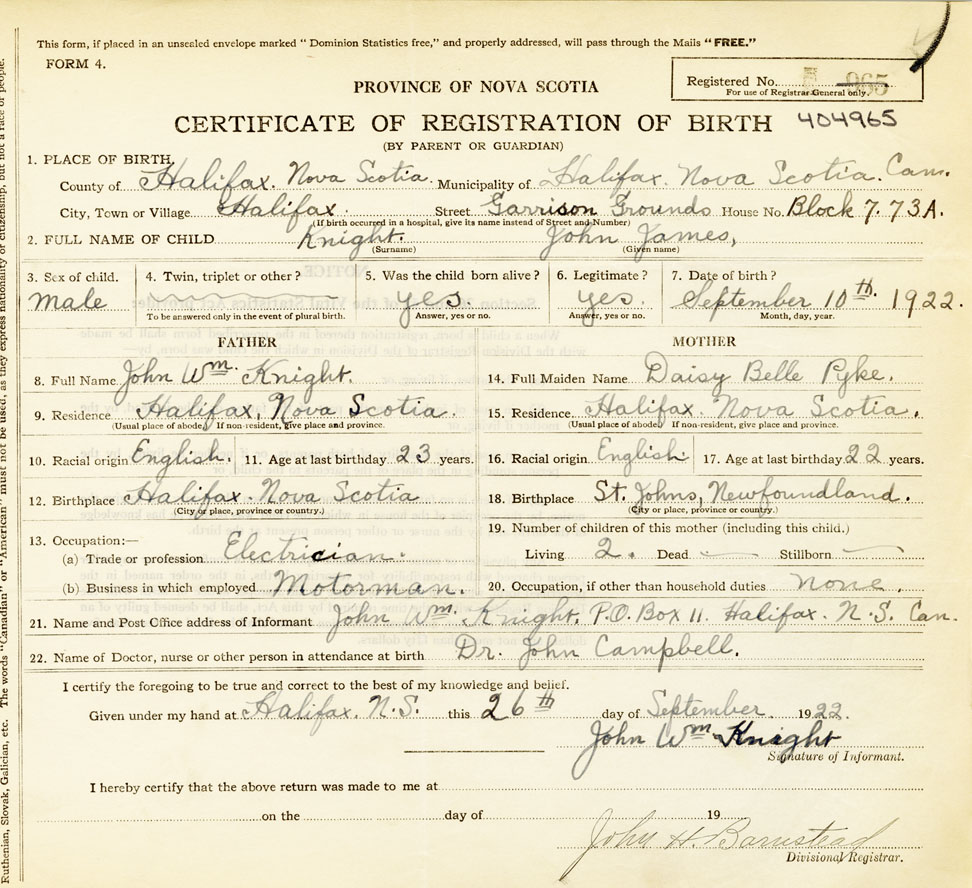 This form, if placed in an unsealed envelope marked "Dominion Statistics free," and properly addressed, will pass through the Mails "FREE."
FORM 4.
PROVINCE OF NOVA SCOTIA
Registered No. 965
For use of Registrar General only.
CERTIFICATE OF REGISTRATION OF BIRTH 404965
(BY PARENT OR GUARDIAN)
1. PLACE OF BIRTH
County of Halifax. Nova Scotia. Municipality of Halifax. Nova Scotia. Can.
City, Town or Village Halifax. Street Garrison Grounds House No. Block 7. 73A.
(If birth occurred in a hospital, give its name instead of Street and Number)
2. FULL NAME OF CHILD Knight. John James,
(Surname) (Given name)
3. Sex of child. 4. Twin, triplet or other? 5. Was the child born alive? 6. Legitimate? 7. Date of birth?
Male yes. yes. September 10th. 1922.
To be answered only in the event of plural birth. Answer, yes or no. Answer, yes or no. Month, day, year.
FATHER MOTHER
8. Full Name John Wm. Knight. 14. Full Maiden Name Daisy Belle Pyke.
9. Residence Halifax, Nova Scotia. 15. Residence Halifax. Nova Scotia.
(Usual place of abode) If non-resident, give place and province. (Usual place of abode) If non-resident, give place and province.
10. Racial origin English. 11. Age at last birthday 23 years. 16. Racial origin English 17. Age at last birthday 22 years.
12. Birthplace Halifax. Nova Scotia 18. Birthplace St. Johns, Newfoundland.
(City or place, province or country.) (City or place, province or country.)
13. Occupation:— 19. Number of children of this mother (including this child.)
(a) Trade or profession Electrician. Living 2. Dead — Stillborn —
(b) Business in which employed Motorman. 20. Occupation, if other than household duties none.
21. Name and Post Office address of Informant John Wm. Knight. P.O. Box 11. Halifax. N.S. Can.
22. Name of Doctor, nurse or other person in attendance at birth Dr. John Campbell.
I certify the foregoing to be true and correct to the best of my knowledge and belief.
Given under my hand at Halifax. N.S. this 26th day of September. 1922.
John Wm. Knight
Signature of Informant.
I hereby certify that the above return was made to me at
on the day of 19
John H. Barnstead
Divisional Registrar.
Ruthenian, Slovak, Galician, etc. The words "Canadian" or "American" must not be used, as they express nationality or citizenship, but not a race of people.